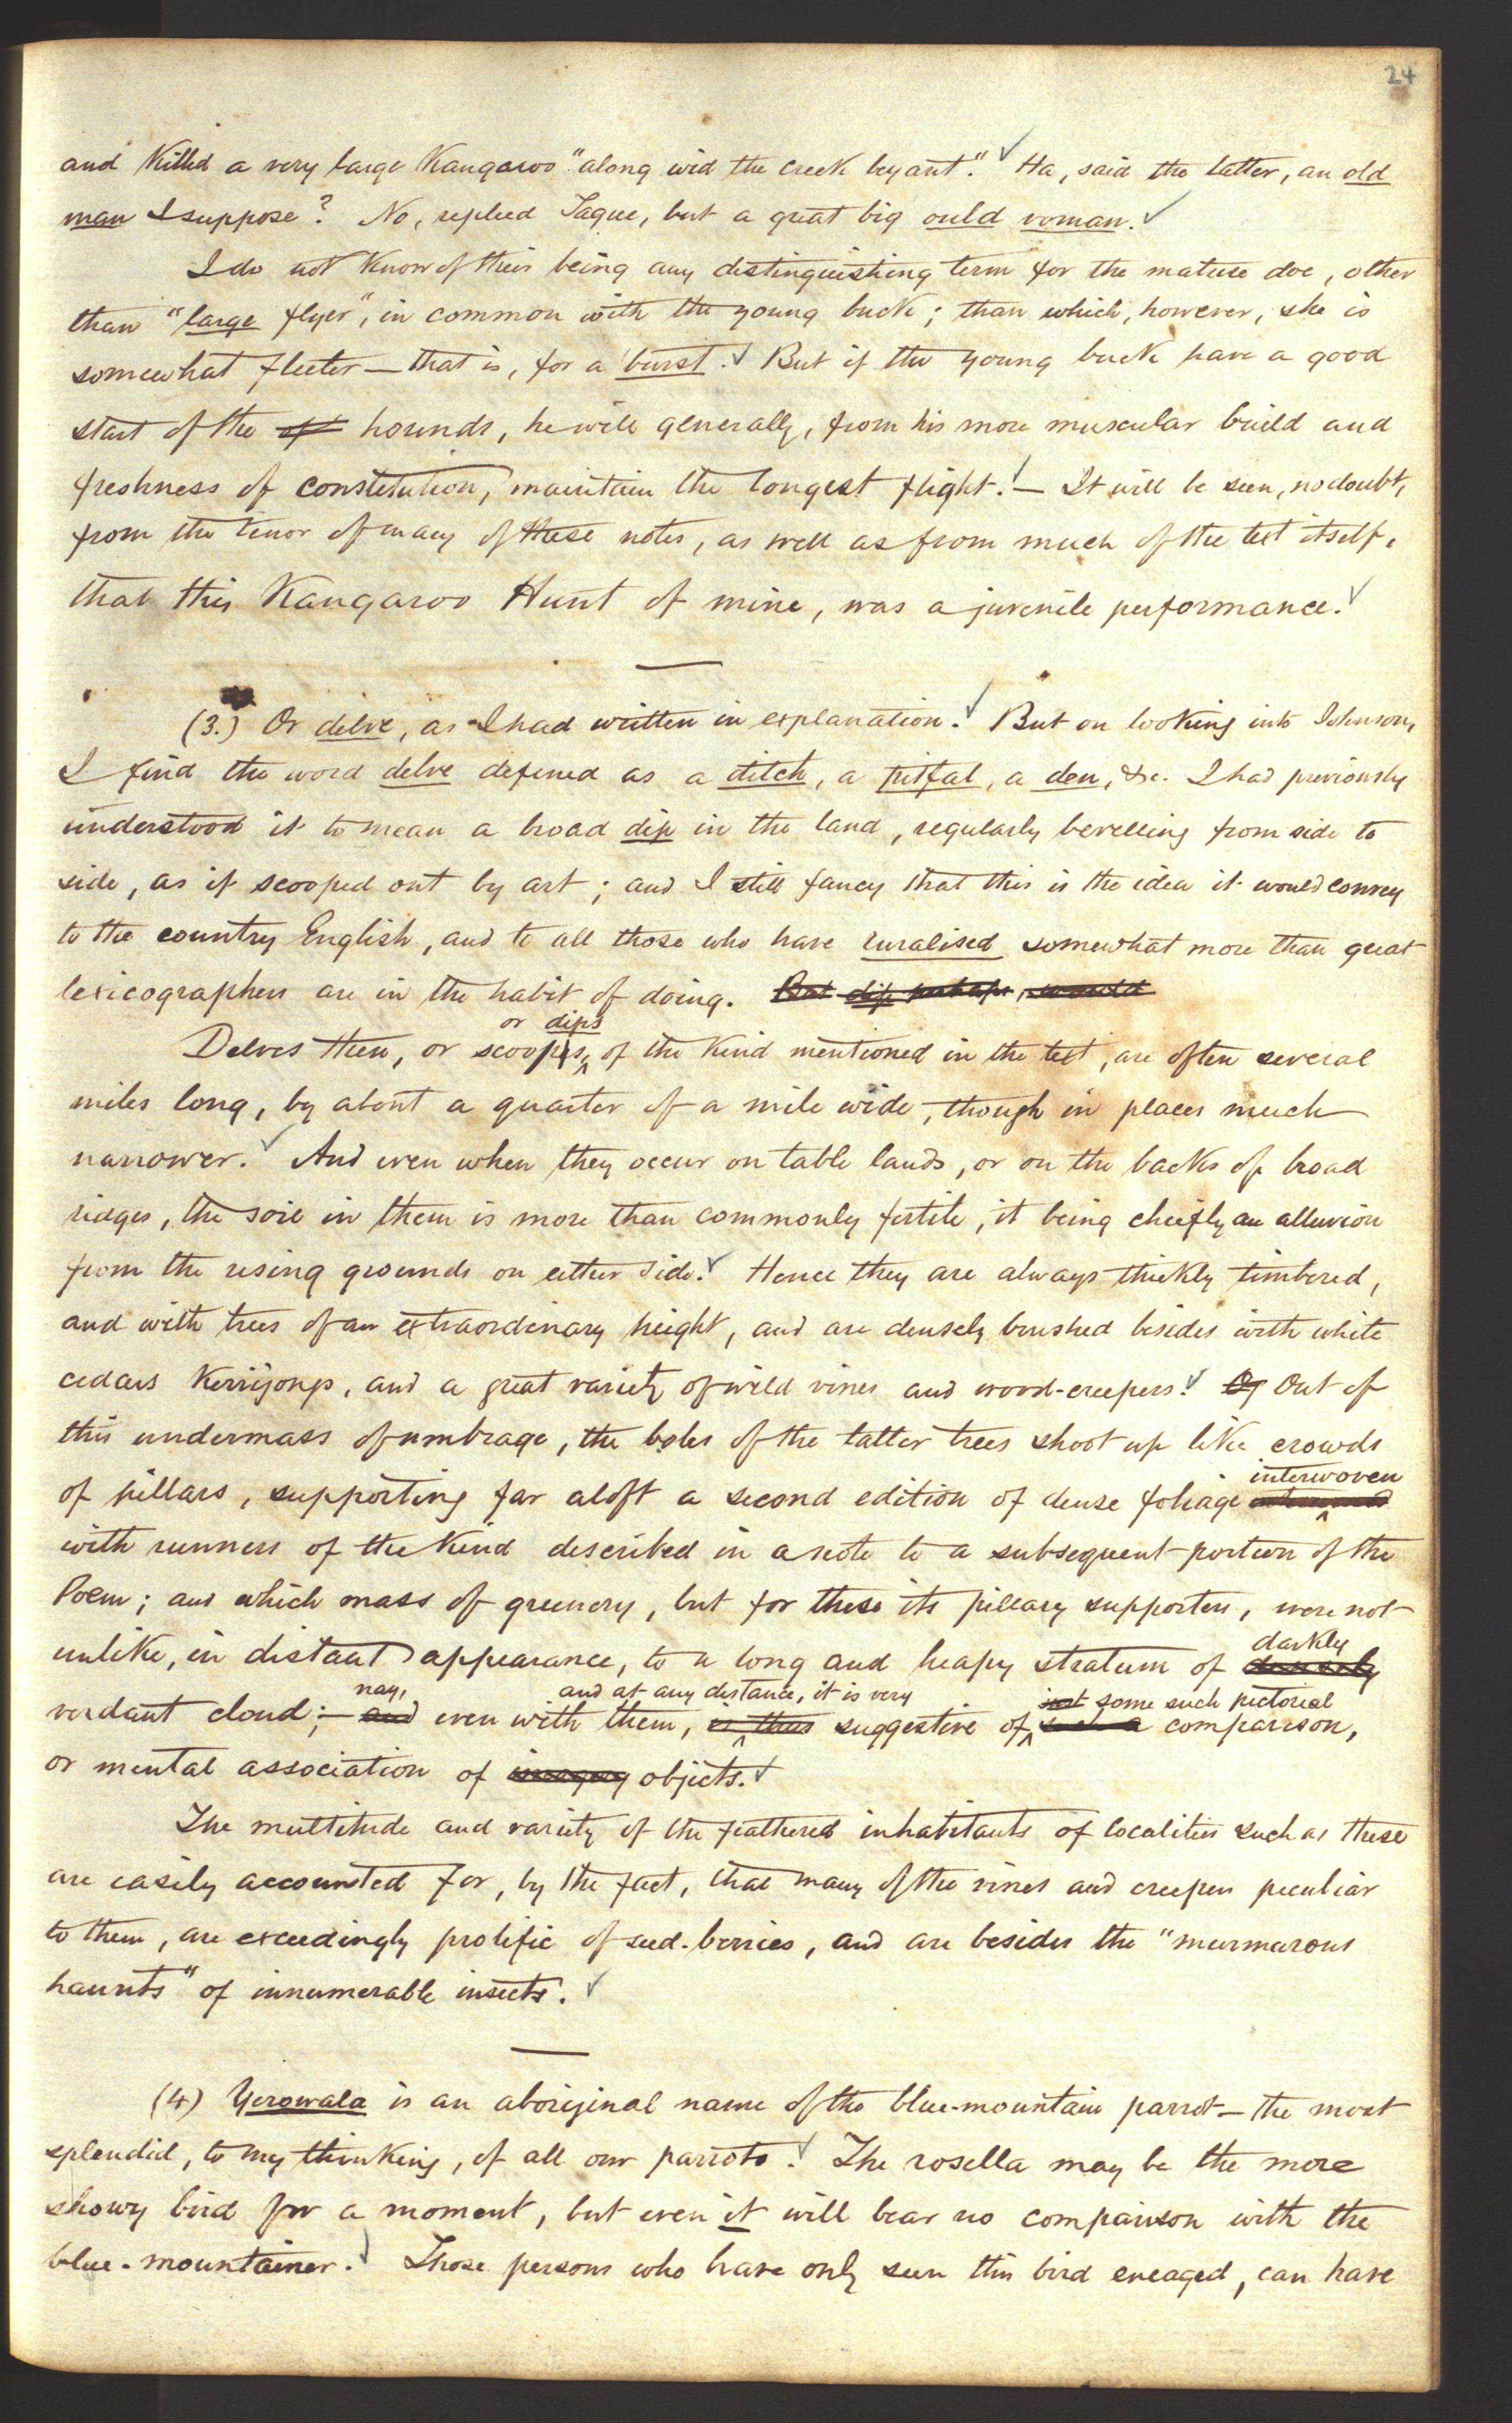 24
and killed a very large Kangaroo "along wid the creek beyant". Ha, said the latter, an old
man I suppose? No, replied Tague, but a great big ould woman.
I do not know of their being any distinguishing term for the mature doe, other
than "large flyer", in common with the young buck; than which, however, she is
somewhat fleeter — that is, for a burst. But if the young buck have a good
start of the of hounds, he will generally, from his more muscular build and
freshness of constitution, maintain the longest flight. — It will be seen, no doubt,
from the tenor of many of these notes, as well as from much of the text itself,
that this Kangaroo Hunt of mine, was a juvenile performance.
(3.) Or delve, as I had written in explanation. But on looking into Johnson,
I find the word delve defined as a ditch, a pitfal, a den, &c. I had previously
understood it to mean a broad dip in the land, regularly bevelling from side to
side, as if scooped out by art; and I still fancy that this is the idea it would convey
to the country English, and to all those who have ruralised somewhat more than great
lexicographers are in the habit of doing. But dip perhaps, would
or dips
Delves then, or scoops, of the kind mentioned in the text, are often several
miles long, by about a quarter of a mile wide, though in places much
narrower. And even when they occur on table lands, or on the backs of broad
ridges, the soil in them is more than commonly fertile, it being chiefly an alluvion
from the rising grounds on either side. Hence they are always thickly timbered,
and with trees of an extraordinary height, and are densely brushed besides with white
cedars Kerrijongs, and a great variety of wild vines and wood-creepers. Of Out of
this undermass of umbrage, the boles of the latter trees shoot up like crowds
interwoven
of pillars, supporting far aloft a second edition of dense foliage
with runners of the kind described in a note to a subsequent portion of the
Poem; and which mass of greenery, but for these its pillary supporters, were not
darkly
unlike, in distant appearance, to a long and heapy stratum of densely
nay, and at any distance, it is very just some such pictorial
verdant cloud; — and even with them, is thus suggestive of such a comparison,
or mental association of imagery objects.
The multitude and variety of the feathered inhabitants of localities such as these
are easily accounted for, by the fact, that many of the vines and creepers peculiar
to them, are exceedingly prolific of seed-berries, and are besides the "murmurous
haunts" of innumerable insects.
(4) Yerowala is an aboriginal name of the blue-mountain parrot — the most
splendid, to my thinking, of all our parrots. The rosella may be the more
showy bird for a moment, but even it will bear no comparison with the
blue-mountainer. Those persons who have only seen this bird encaged, can have